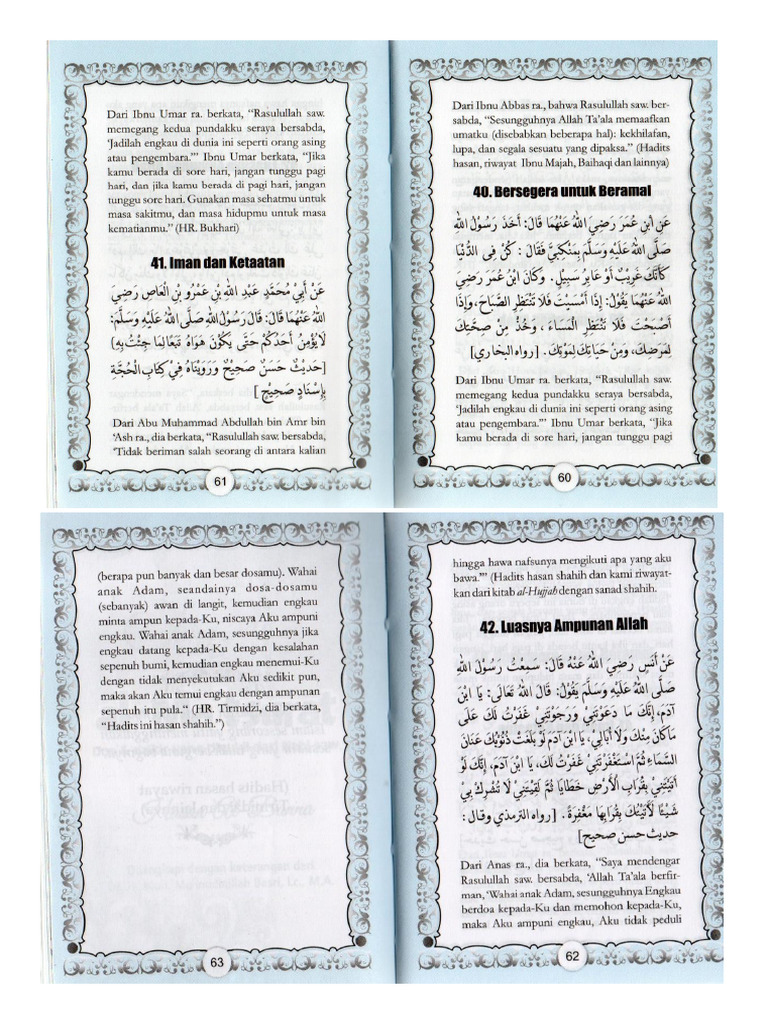 Dari Ibnu Abbas ra., bahwa Rasulullah saw. ber-
sabda, “Sesungguhnya Allah Ta’ala memaafkan
umatku (disebabkan beberapa hal): kekhilafan,
lupa, dan segala sesuatu yang dipaksa.” (Hadits
hasan, riwayat Ibnu Majah, Baihaqi dan lainnya)
40. Bersegera untuk Beramal
عَنِ ابْنِ عُمَرَ رَضِيَ اللهُ عَنْهُمَا قَالَ: أَخَذَ رَسُوْلُ اللهِ
صَلَّى اللهُ عَلَيْهِ وَسَلَّمَ بِمَنْكِبَيَّ فَقَالَ : كُنْ فِى الدُّنْيَا
كَأَنَّكَ غَرِيْبٌ أَوْ عَابِرُ سَبِيْلٍ. وَكَانَ ابْنُ عُمَرَ رَضِيَ
اللهُ عَنْهُمَا يَقُوْلُ: إِذَا أَمْسَيْتَ فَلَا تَنْتَظِرِ الصَّبَاحَ، وَإِذَا
أَصْبَحْتَ فَلَا تَنْتَظِرِ الْمَسَاءَ ، وَخُذْ مِنْ صِحَّتِكَ
لِمَرَضِكَ، وَمِنْ حَيَاتِكَ لِمَوْتِكَ. [رواه البخاري]
Dari Ibnu Umar ra. berkata, “Rasulullah saw.
memegang kedua pundakku seraya bersabda,
‘Jadilah engkau di dunia ini seperti orang asing
atau pengembara.’” Ibnu Umar berkata, “Jika
kamu berada di sore hari, jangan tunggu pagi
60
Dari Ibnu Umar ra. berkata, “Rasulullah saw.
memegang kedua pundakku seraya bersabda,
‘Jadilah engkau di dunia ini seperti orang asing
atau pengembara.’” Ibnu Umar berkata, “Jika
kamu berada di sore hari, jangan tunggu pagi
hari, dan jika kamu berada di pagi hari, jangan
tunggu sore hari. Gunakan masa sehatmu untuk
masa sakitmu, dan masa hidupmu untuk masa
kematianmu.” (HR. Bukhari)
41. Iman dan Ketaatan
عَنْ أَبِيْ مُحَمَّدٍ عَبْدِ اللهِ بْنِ عَمْرِو بْنِ الْعَاصِ رَضِيَ
اللهُ عَنْهُمَا قَالَ: قَالَ رَسُوْلُ اللهِ صَلَّى اللهُ عَلَيْهِ وَسَلَّمَ:
لَا يُؤْمِنُ أَحَدُكُمْ حَتَّى يَكُوْنَ هَوَاهُ تَبَعًا لِمَا جِئْتُ بِهِ)
[حَدِيْثٌ حَسَنٌ صَحِيْحٌ وَرَوَيْنَاهُ فِيْ كِتَابِ الْحُجَّةِ
بِإِسْنَادٍ صَحِيْحٍ ]
Dari Abu Muhammad Abdullah bin Amr bin
‘Ash ra., dia berkata, “Rasulullah saw. bersabda,
‘Tidak beriman salah seorang di antara kalian
61
hingga hawa nafsunya mengikuti apa yang aku
bawa.’” (Hadits hasan shahih dan kami riwayat-
kan dari kitab al-Hujjah dengan sanad shahih.
42. Luasnya Ampunan Allah
عَنْ أَنَسٍ رَضِيَ اللهُ عَنْهُ قَالَ: سَمِعْتُ رَسُوْلَ اللهِ
صَلَّى اللهُ عَلَيْهِ وَسَلَّمَ يَقُوْلُ: قَالَ اللهُ تَعَالَى: يَا ابْنَ
آدَمَ، إِنَّكَ مَا دَعَوْتَنِيْ وَرَجَوْتَنِيْ غَفَرْتُ لَكَ عَلَى
مَا كَانَ مِنْكَ وَلَا أُبَالِيْ، يَا ابْنَ آدَمَ لَوْ بَلَغَتْ ذُنُوْبُكَ عَنَانَ
السَّمَاءِ ثُمَّ اسْتَغْفَرْتَنِيْ غَفَرْتُ لَكَ، يَا ابْنَ آدَمَ، إِنَّكَ لَوْ
أَتَيْتَنِيْ بِقُرَابِ الْأَرْضِ خَطَايَا ثُمَّ لَقِيْتَنِيْ لَا تُشْرِكُ بِيْ
شَيْئًا لَأَتَيْتُكَ بِقُرَابِهَا مَغْفِرَةً . [رواه الترمذي وقال :
حديث حسن صحيح]
Dari Anas ra., dia berkata, “Saya mendengar
Rasulullah saw. bersabda, ‘Allah Ta’ala berfir-
man, ‘Wahai anak Adam, sesungguhnya Engkau
berdoa kepada-Ku dan memohon kepada-Ku,
maka Aku ampuni engkau, Aku tidak peduli
62
(berapa pun banyak dan besar dosamu). Wahai
anak Adam, seandainya dosa-dosamu
(sebanyak) awan di langit, kemudian engkau
minta ampun kepada-Ku, niscaya Aku ampuni
engkau. Wahai anak Adam, sesungguhnya jika
engkau datang kepada-Ku dengan kesalahan
sepenuh bumi, kemudian engkau menemui-Ku
dengan tidak menyekutukan Aku sedikit pun,
maka akan Aku temui engkau dengan ampunan
sepenuh itu pula.“ (HR. Tirmidzi, dia berkata,
“Hadits ini hasan shahih.”)
63